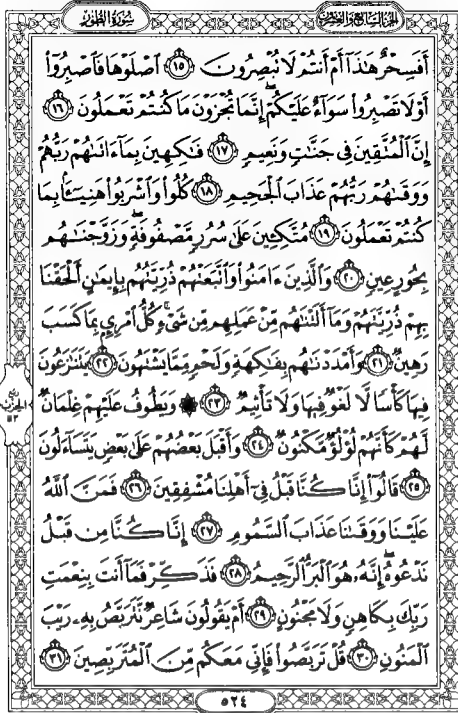 الجزء السابع والعشرون
سورة الطور
أَفَسِحْرٌ هَٰذَآ أَمْ أَنتُمْ لَا تُبْصِرُونَ ١٥ ٱصْلَوْهَا فَٱصْبِرُوٓا۟
أَوْ لَا تَصْبِرُوا۟ سَوَآءٌ عَلَيْكُمْ ۖ إِنَّمَا تُجْزَوْنَ مَا كُنتُمْ تَعْمَلُونَ ١٦
إِنَّ ٱلْمُتَّقِينَ فِى جَنَّٰتٍ وَنَعِيمٍ ١٧ فَٰكِهِينَ بِمَآ ءَاتَىٰهُمْ رَبُّهُمْ
وَوَقَىٰهُمْ رَبُّهُمْ عَذَابَ ٱلْجَحِيمِ ١٨ كُلُوا۟ وَٱشْرَبُوا۟ هَنِيٓـًٔۢا بِمَا
كُنتُمْ تَعْمَلُونَ ١٩ مُتَّكِـِٔينَ عَلَىٰ سُرُرٍ مَّصْفُوفَةٍ ۖ وَزَوَّجْنَٰهُم
بِحُورٍ عِينٍ ٢٠ وَٱلَّذِينَ ءَامَنُوا۟ وَٱتَّبَعَتْهُمْ ذُرِّيَّتُهُم بِإِيمَٰنٍ أَلْحَقْنَا
بِهِمْ ذُرِّيَّتَهُمْ وَمَآ أَلَتْنَٰهُم مِّنْ عَمَلِهِم مِّن شَىْءٍ ۚ كُلُّ ٱمْرِئٍۭ بِمَا كَسَبَ
رَهِينٌ ٢١ وَأَمْدَدْنَٰهُم بِفَٰكِهَةٍ وَلَحْمٍ مِّمَّا يَشْتَهُونَ ٢٢ يَتَنَٰزَعُونَ
فِيهَا كَأْسًا لَّا لَغْوٌ فِيهَا وَلَا تَأْثِيمٌ ٢٣ ۞ وَيَطُوفُ عَلَيْهِمْ غِلْمَانٌ
لَّهُمْ كَأَنَّهُمْ لُؤْلُؤٌ مَّكْنُونٌ ٢٤ وَأَقْبَلَ بَعْضُهُمْ عَلَىٰ بَعْضٍ يَتَسَآءَلُونَ
٢٥ قَالُوٓا۟ إِنَّا كُنَّا قَبْلُ فِىٓ أَهْلِنَا مُشْفِقِينَ ٢٦ فَمَنَّ ٱللَّهُ
عَلَيْنَا وَوَقَىٰنَا عَذَابَ ٱلسَّمُومِ ٢٧ إِنَّا كُنَّا مِن قَبْلُ
نَدْعُوهُ ۖ إِنَّهُۥ هُوَ ٱلْبَرُّ ٱلرَّحِيمُ ٢٨ فَذَكِّرْ فَمَآ أَنتَ بِنِعْمَتِ
رَبِّكَ بِكَاهِنٍ وَلَا مَجْنُونٍ ٢٩ أَمْ يَقُولُونَ شَاعِرٌ نَّتَرَبَّصُ بِهِۦ رَيْبَ
ٱلْمَنُونِ ٣٠ قُلْ تَرَبَّصُوا۟ فَإِنِّى مَعَكُم مِّنَ ٱلْمُتَرَبِّصِينَ ٣١
الحزب
٥٣
٥٢٤